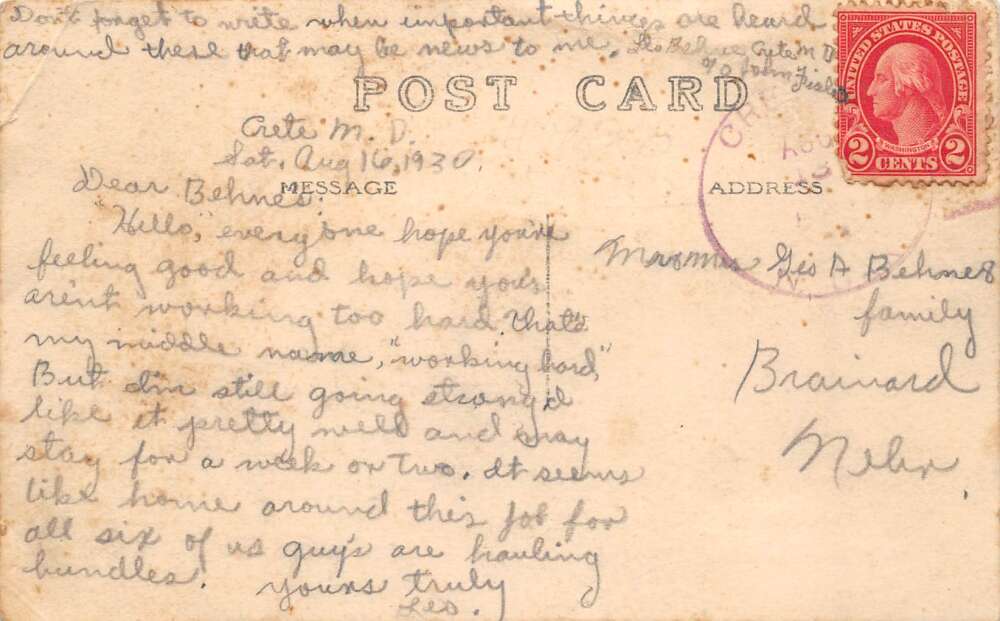 Don't forget to write when important things are heard
around there that may be news to me. Leo Behne, Cryte M. D
% John
POST CARD
Crete M. D.
Sat. Aug 16, 1930.
MESSAGE
ADDRESS
Dear Behnes:
"Hello," everyone hope you're
feeling good and hope you's
aren't working too hard. that's
my middle name, "working hard,"
But I'm still going strong, I
like it pretty well and may
stay for a week or two. It seems
like home around this job for
all six of us guy's are hauling
bundles.
yours truly
Leo.
UNITED STATES POSTAGE
WASHINGTON
2 CENTS 2
CR
AUG
Mr & Mrs Geo A Behne &
family
Brainard
Nebr.